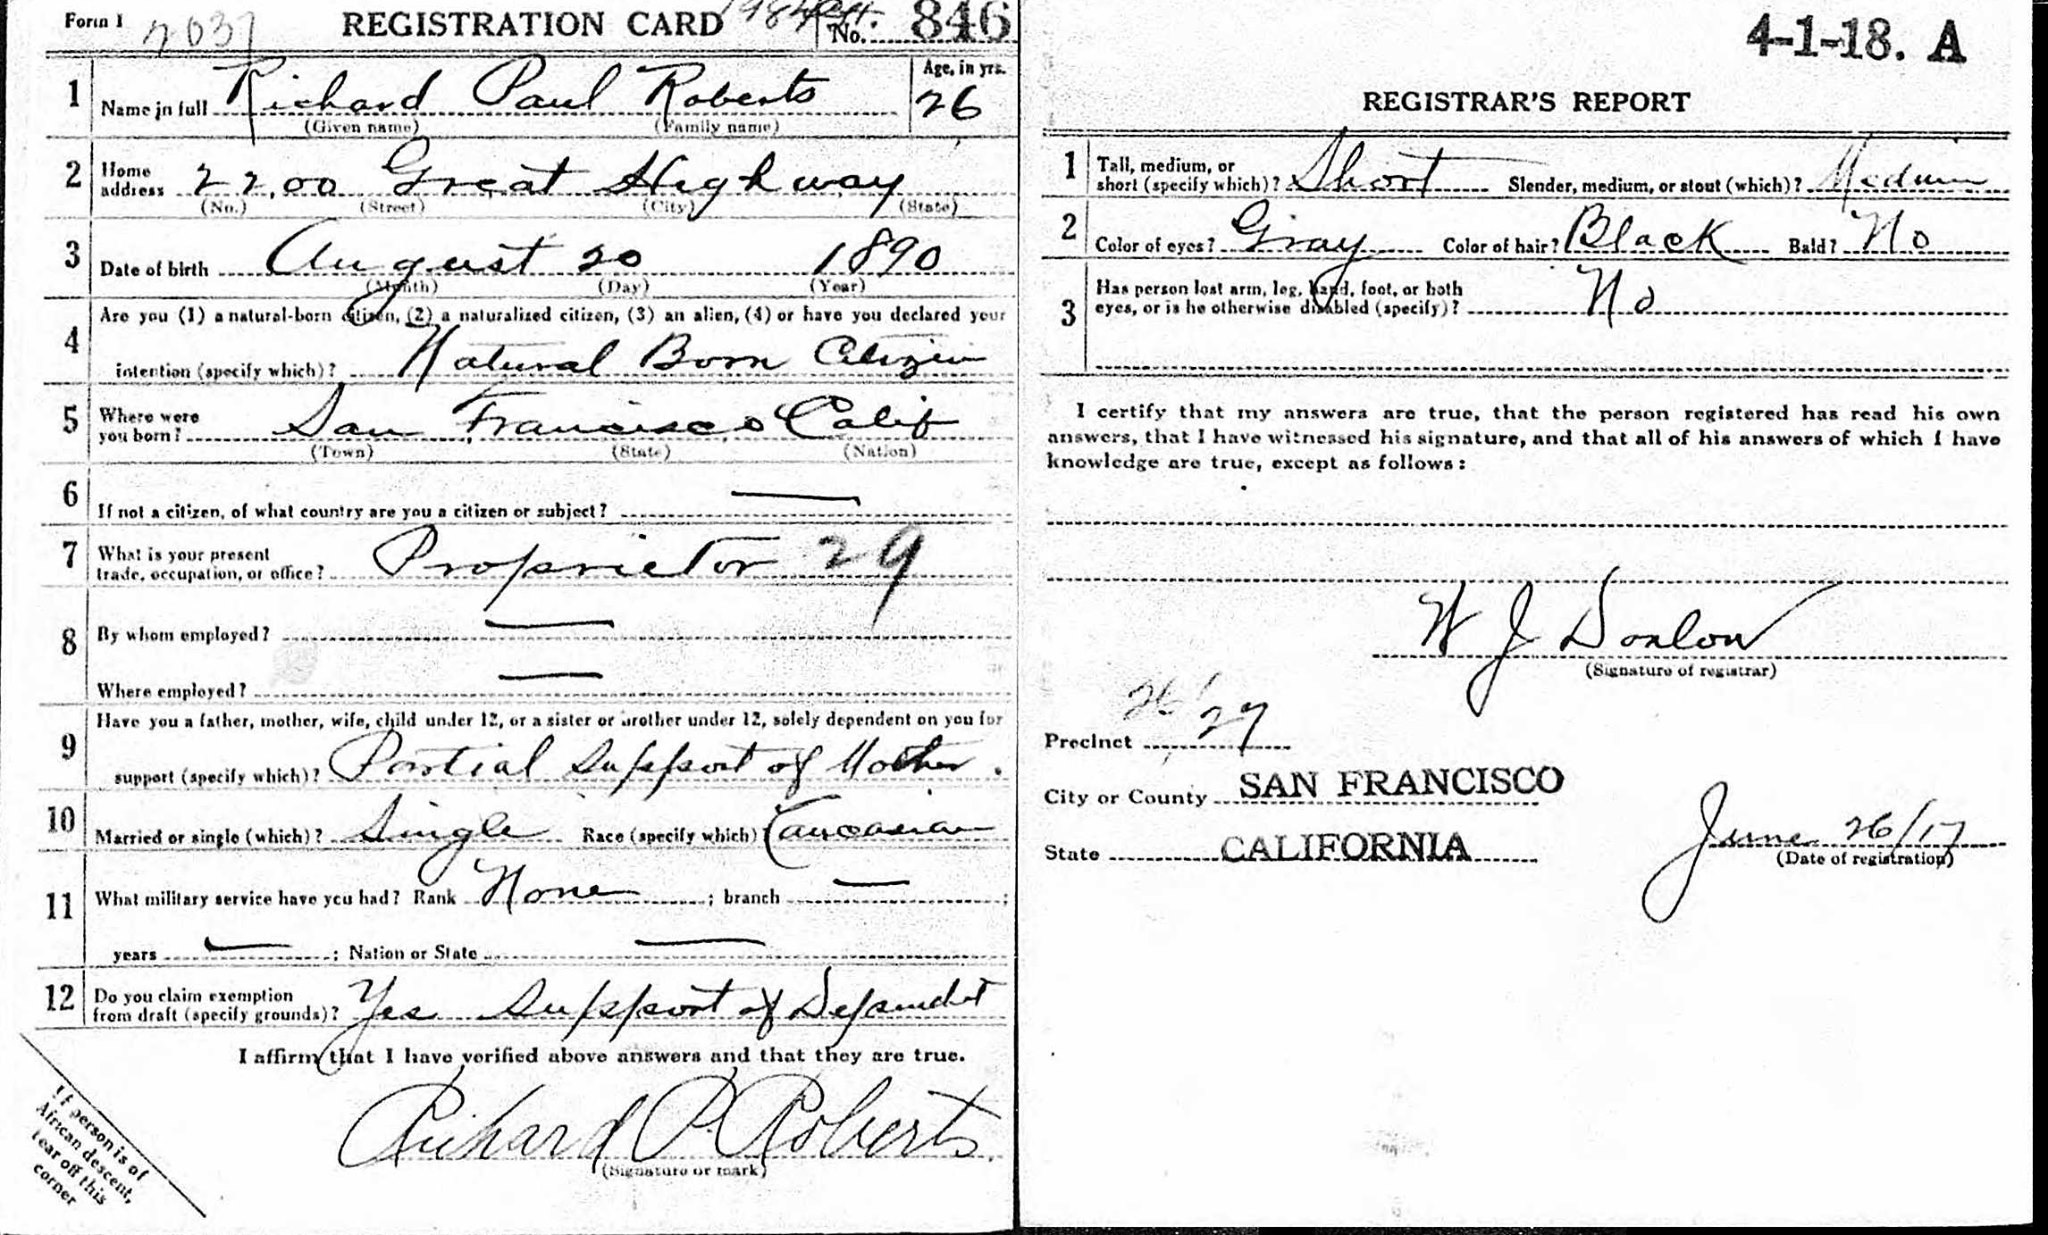 Form 1 2037 REGISTRATION CARD No. 846
1 Name in full Richard Paul Roberts Age, in yrs. 26
(Given name) (Family name)
2 Home address 2200 Great Highway
(No.) (Street) (City) (State)
3 Date of birth August 20 1890
(Month) (Day) (Year)
Are you (1) a natural-born citizen, (2) a naturalized citizen, (3) an alien, (4) or have you declared your
4 intention (specify which)? Natural Born Citizen
5 Where were you born? San Francisco Calif
(Town) (State) (Nation)
6 If not a citizen, of what country are you a citizen or subject? —
7 What is your present trade, occupation, or office? Proprietor 29
8 By whom employed? —
Where employed? —
Have you a father, mother, wife, child under 12, or a sister or brother under 12, solely dependent on you for
9 support (specify which)? Partial Support of Mother.
10 Married or single (which)? Single Race (specify which) Caucasian
11 What military service have you had? Rank None ; branch — ;
years — ; Nation or State —
12 Do you claim exemption from draft (specify grounds)? Yes Support of Dependet
I affirm that I have verified above answers and that they are true.
Richard P. Roberts.
(Signature or mark)
If person is of
African descent,
tear off this
corner
4-1-18. A
REGISTRAR'S REPORT
1 Tall, medium, or short (specify which)? Short Slender, medium, or stout (which)? Medium
2 Color of eyes? Gray Color of hair? Black Bald? No
3 Has person lost arm, leg, hand, foot, or both
eyes, or is he otherwise disabled (specify)? No
I certify that my answers are true, that the person registered has read his own
answers, that I have witnessed his signature, and that all of his answers of which I have
knowledge are true, except as follows:
W J Donlow
(Signature of registrar)
26/
Precinct 27
City or County SAN FRANCISCO
State CALIFORNIA
June 26/17
(Date of registration)